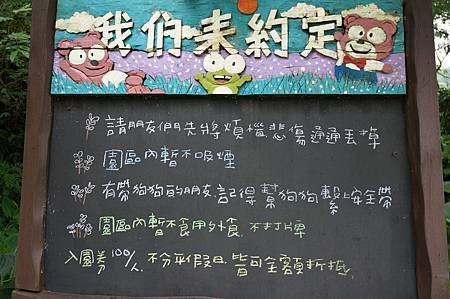 我们来約定
請朋友們先將煩惱悲傷通通丟掉
園區內暫不吸煙
有帶狗狗的朋友記得幫狗狗繫上安全帶
園區內暫不食用外食 不打牌
入園券100%/人 不分平假日 皆可全額折抵